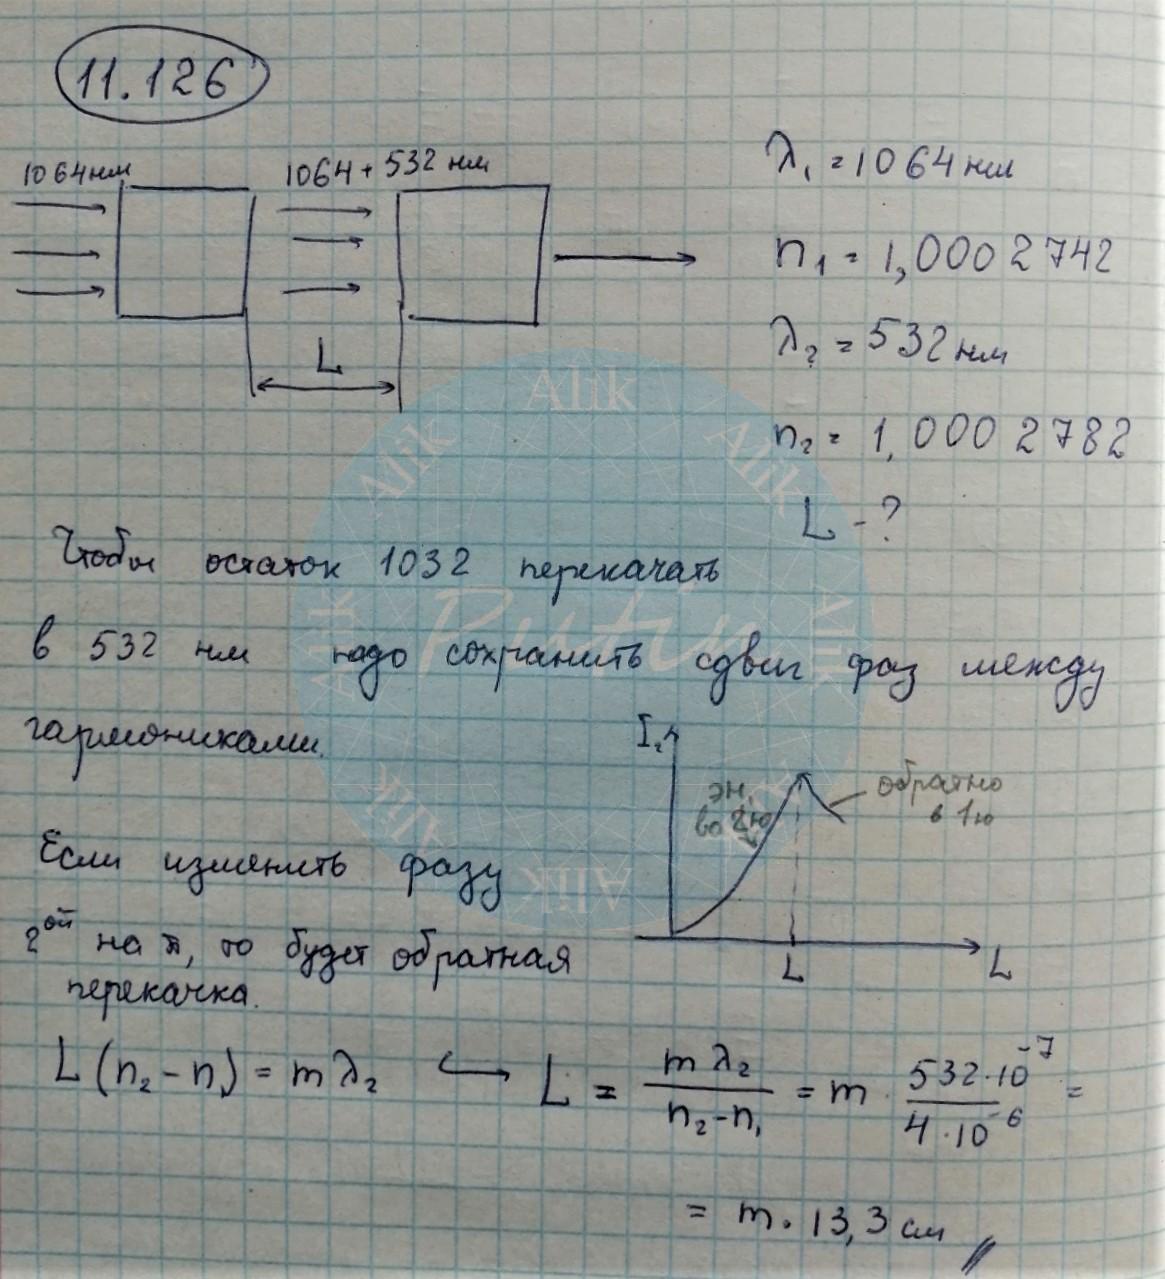 11.126
1064нм 1064 + 532 нм
λ₁ = 1064 нм
n₁ = 1,0002742
λ₂ = 532 нм
n₂ = 1,0002782
L
L - ?
Alik
Alik
Alik
Alik
Alik
Alik
Alik
Putin
Чтобы остаток 1032 перекачать
в 532 нм надо сохранить сдвиг фаз между
гармониками.
I₂
эн.
во 2ю
обратно
в 1ю
L
L
Если изменить фазу
2ой на π, то будет обратная
перекачка.
L(n₂ - n₁) = mλ₂ ↪ L = mλ₂ / (n₂ - n₁) = m · 532·10⁻⁷ / 4·10⁻⁶ =
= m · 13,3 см //